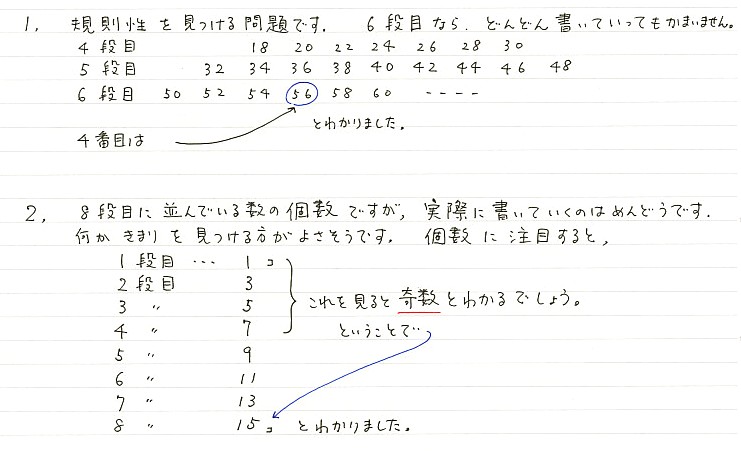 1, 規則性を見つける問題です. 6段目なら, どんどん書いていってもかまいません。
4段目 18 20 22 24 26 28 30
5段目 32 34 36 38 40 42 44 46 48
6段目 50 52 54 56 58 60 ----
4番目は とわかりました。
2, 8段目に並んでいる数の個数ですが, 実際に書いていくのはめんどうです.
何かきまりを見つける方がよさそうです. 個数に注目すると,
1段目 … 1コ
2段目 3
3 〃 5 これを見ると奇数とわかるでしょう。
4 〃 7 ということで…
5 〃 9
6 〃 11
7 〃 13
8 〃 15コ とわかりました。